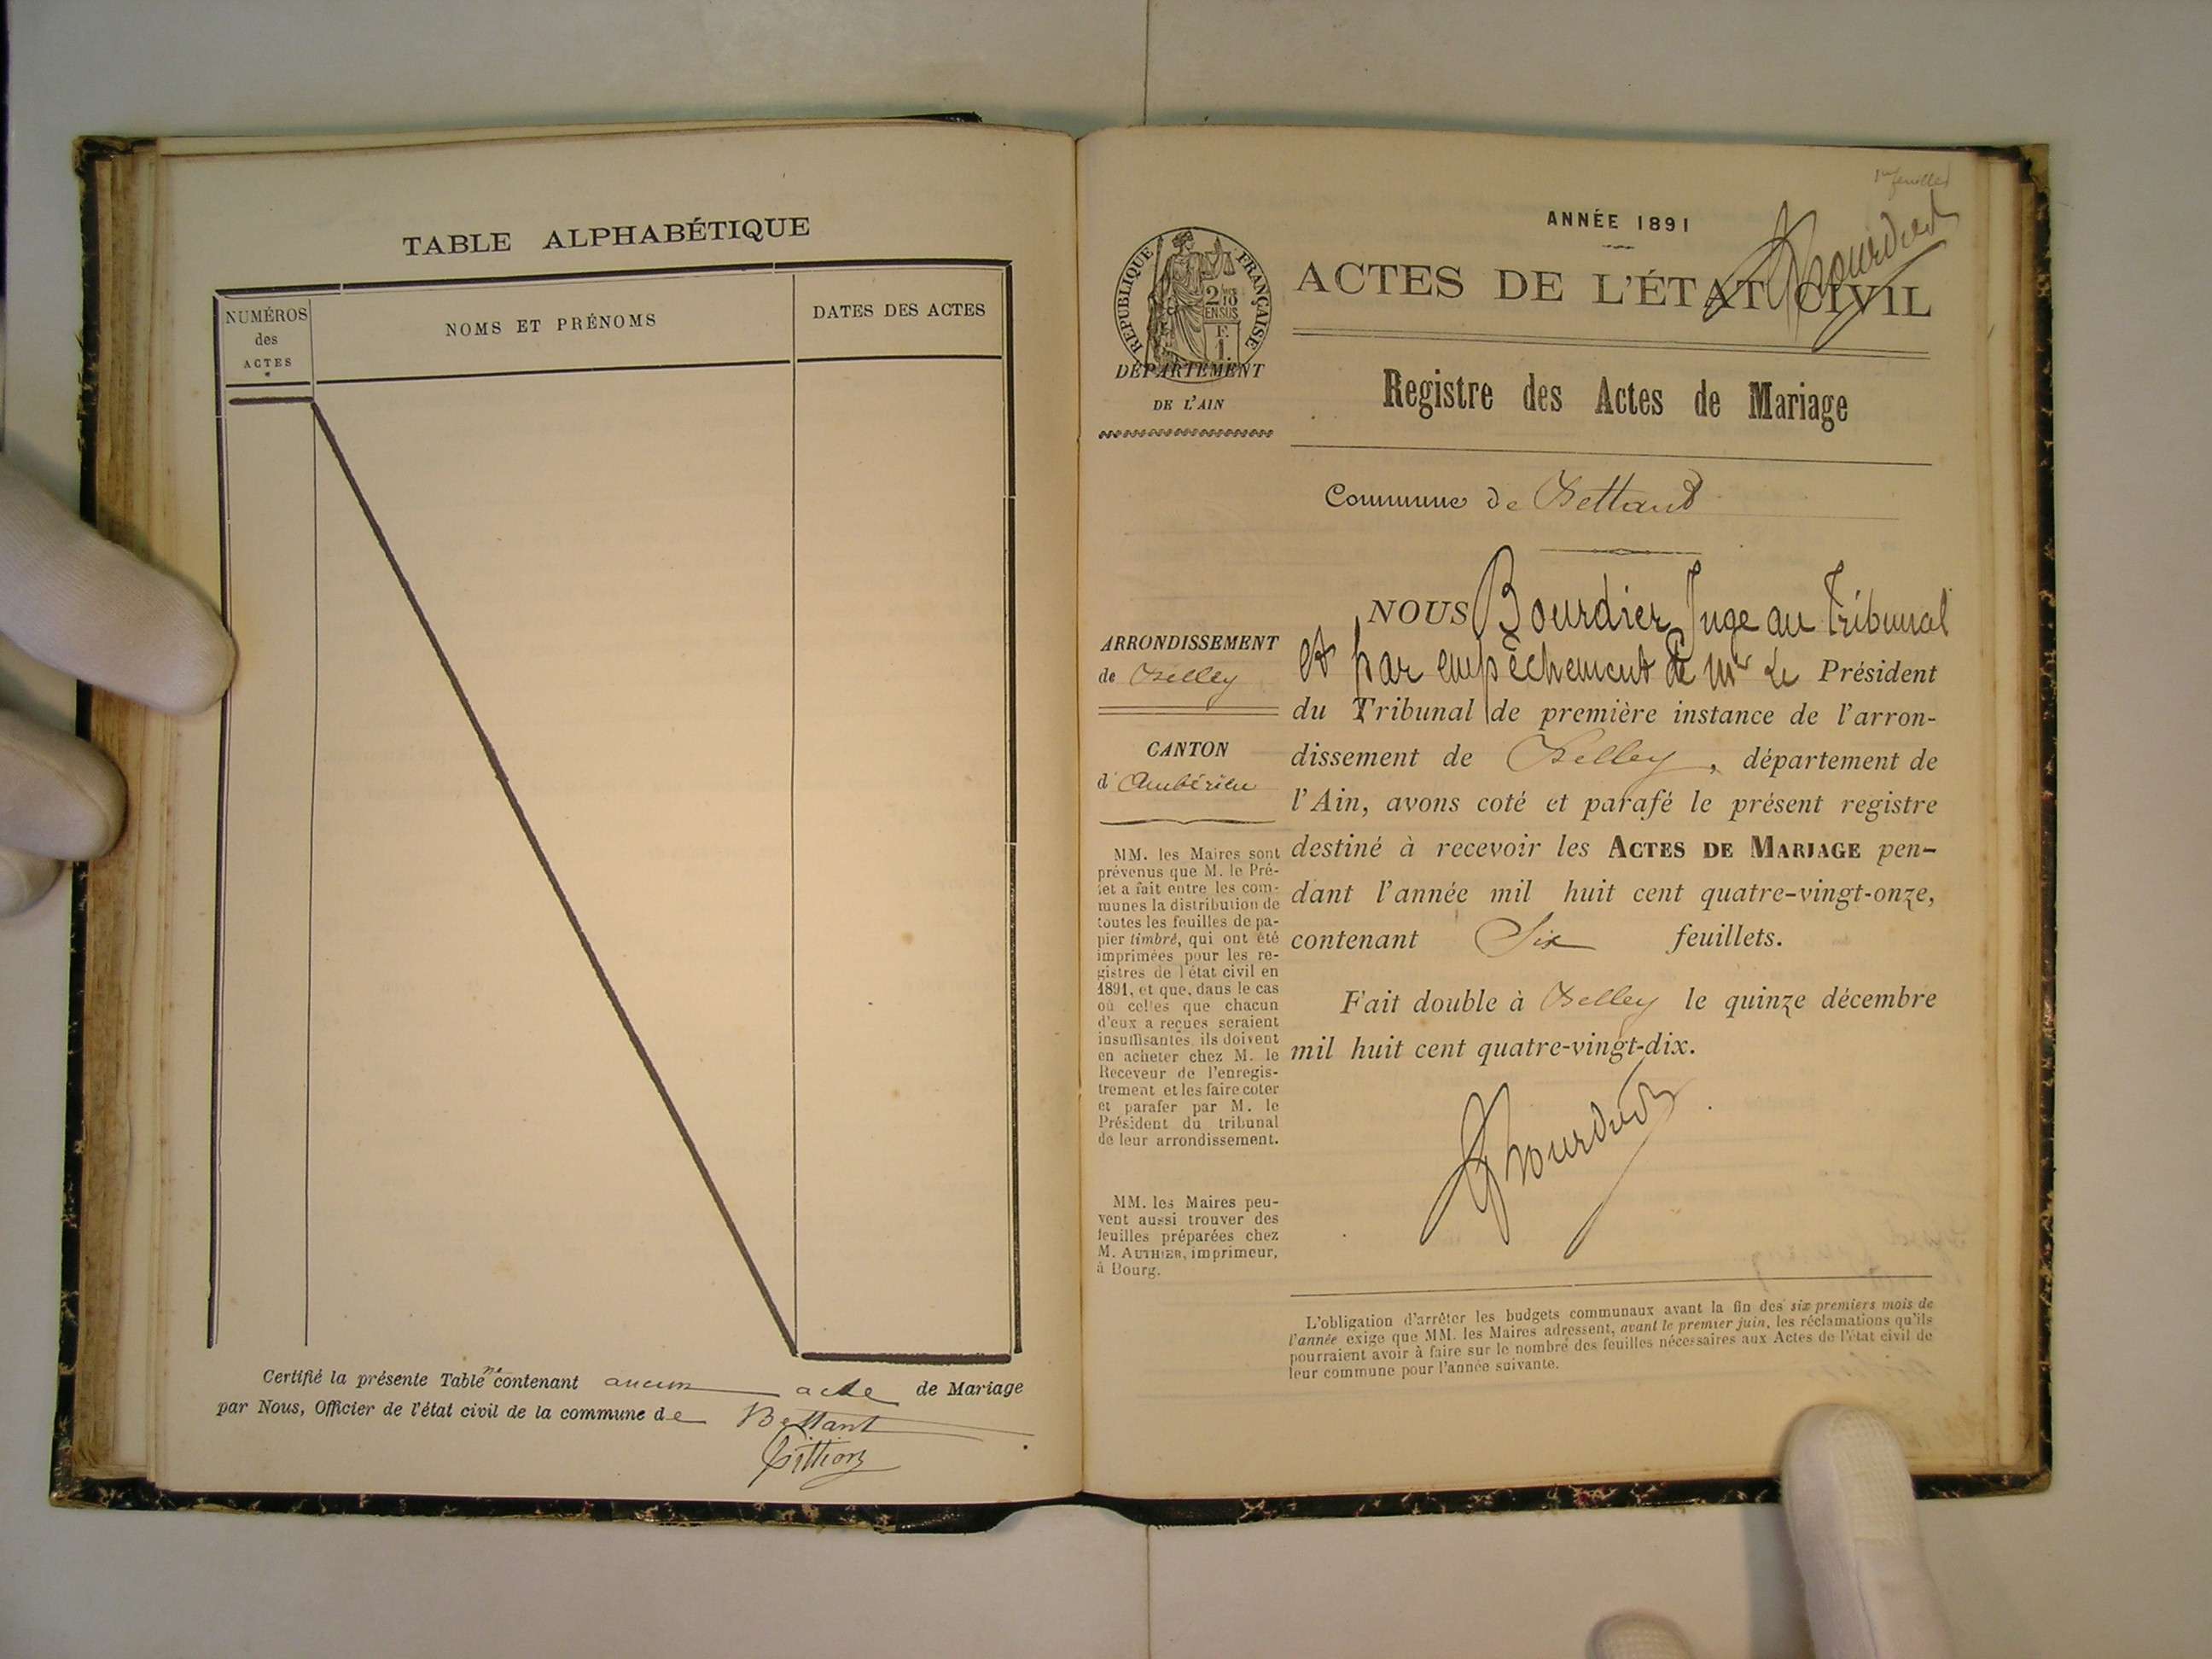 TABLE ALPHABÉTIQUE
NUMÉROS
des
ACTES
NOMS ET PRÉNOMS
DATES DES ACTES
Certifié la présente Table ne contenant aucun acte de Mariage
par Nous, Officier de l'état civil de la commune de Bettant
ANNÉE 1891
ACTES DE L'ÉTAT CIVIL
RÉPUBLIQUE FRANÇAISE
2/10
EN SUS
1F.
DÉPARTEMENT
DE L'AIN
Registre des Actes de Mariage
Commune de Bettant
ARRONDISSEMENT
de Belley
CANTON
d'Ambérieu
MM. les Maires sont
prévenus que M. le Pré-
fet a fait entre les com-
munes la distribution de
toutes les feuilles de pa-
pier timbré, qui ont été
imprimées pour les re-
gistres de l'état civil en
1891, et que, dans le cas
où celles que chacun
d'eux a reçues seraient
insuffisantes, ils doivent
en acheter chez M. le
Receveur de l'enregis-
trement et les faire coter
et parafer par M. le
Président du tribunal
de leur arrondissement.
MM. les Maires peu-
vent aussi trouver des
feuilles préparées chez
M. AUTHIER, imprimeur,
à Bourg.
NOUS Bourdier, Juge au Tribunal
et par empêchement de Mr Le Président
du Tribunal de première instance de l'arron-
dissement de Belley, département de
l'Ain, avons coté et parafé le présent registre
destiné à recevoir les ACTES DE MARIAGE pen-
dant l'année mil huit cent quatre-vingt-onze,
contenant Six feuillets.
Fait double à Belley le quinze décembre
mil huit cent quatre-vingt-dix.
L'obligation d'arrêter les budgets communaux avant la fin des six premiers mois de
l'année exige que MM. les Maires adressent, avant le premier juin, les réclamations qu'ils
pourraient avoir à faire sur le nombre des feuilles nécessaires aux Actes de l'état civil de
leur commune pour l'année suivante.